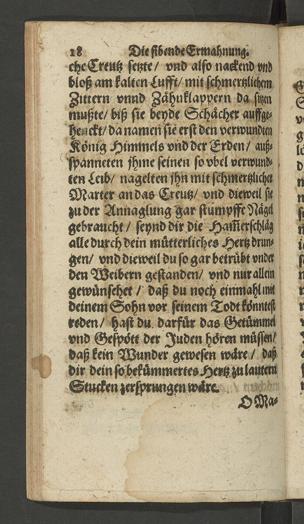 18 Die sibende Ermahnung.
che Creutz setzte / vnd also nackend vnd
bloß am kalten Lufft / mit schmertzlichem
Zittern vnnd Zähnklappern da sitzen
mußte / biß sie beyde Schächer auffge-
henckt / da namen sie erst den verwundten
König Himmels vnd der Erden / auß-
spanneten jhme seinen so vbel verwund-
ten Leib / nagelten jhn mit schmertzlicher
Marter an das Creutz / vnd dieweil sie
zu der Annaglung gar stumpffe Nägel
gebraucht / seynd dir die Ham̃erschläg
alle durch dein mütterliches Hertz drun-
gen / vnd dieweil du so gar betrübt vnder
den Weibern gestanden / vnd nur allein
gewünschet / daß du noch einmahl mit
deinem Sohn vor seinem Todt könntest
reden / hast du darfür das Getümmel
vnd Gespött der Juden hören müssen /
daß kein Wunder gewesen wäre / daß
dir dein so bekümmertes Hertz zu lautern
Stucken zersprungen wäre.
O Ma-